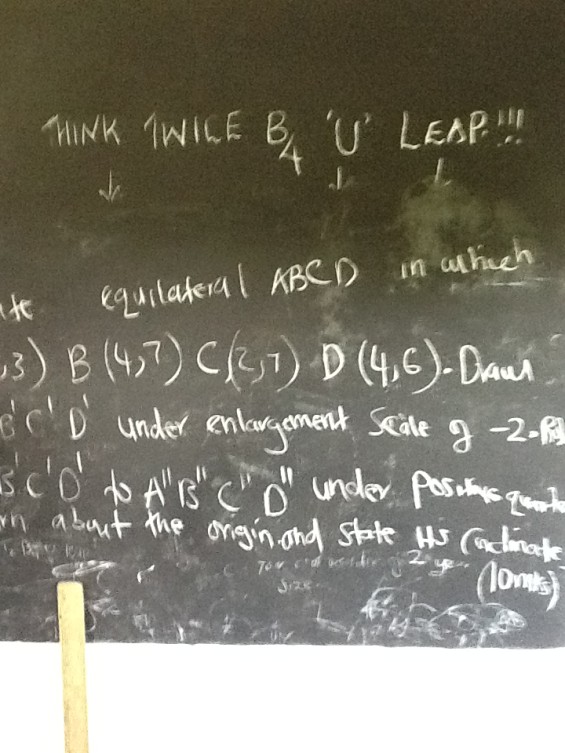 THINK TWICE B4 'U' LEAP!!!
equilateral ABCD in which
,3) B (4,7) C(2,7) D (4,6). Draw
B'C'D' under enlargement Scale of -2.
B'C'D' to A"B"C"D" under positive
rn about the origin and state its
(10mks)